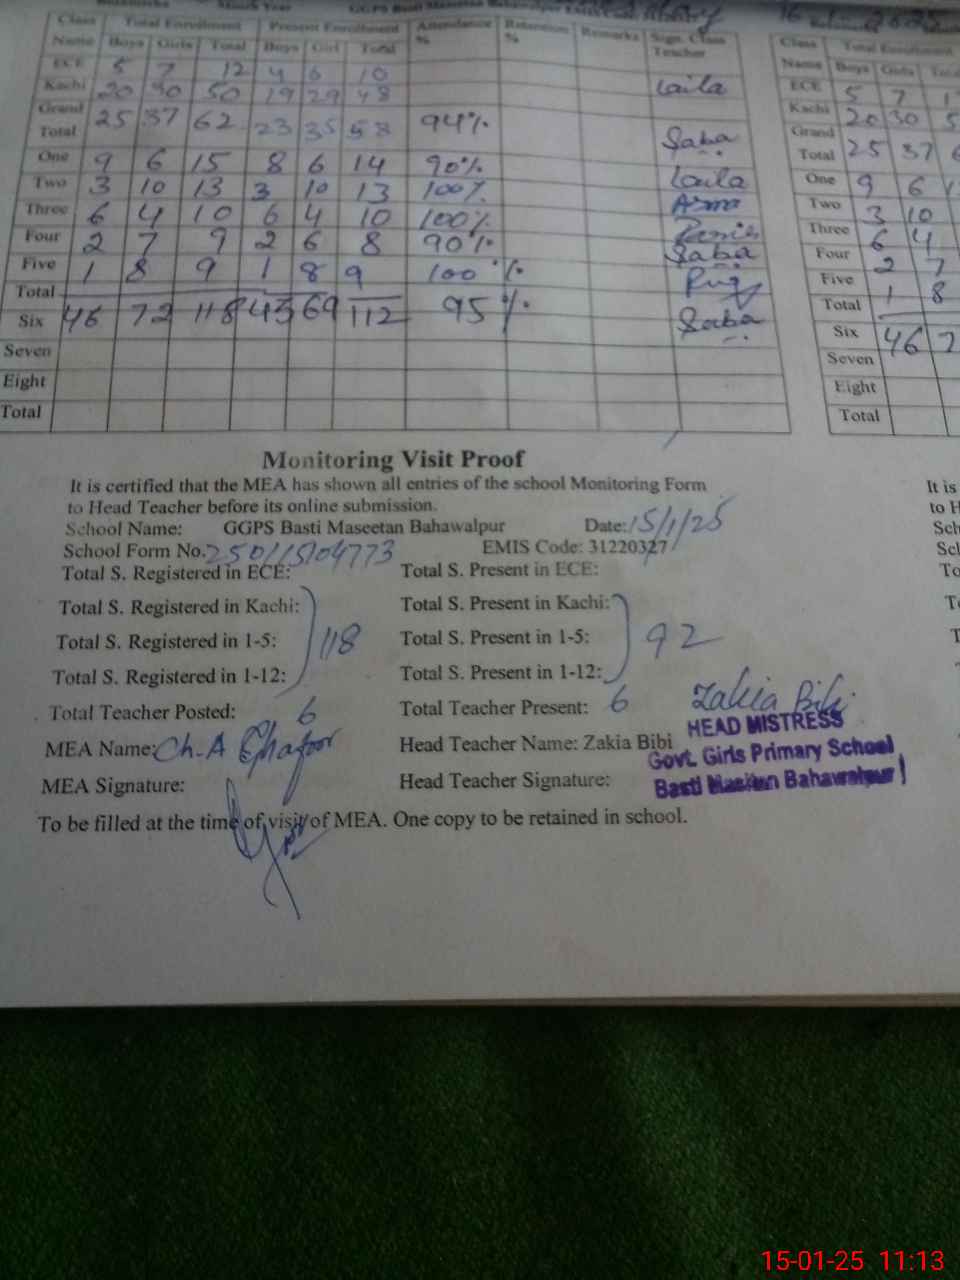 Month Year GGPS Basti Maseetan Bahawalpur
Class Total Enrollment Present Enrollment Attendance Retention Remarks Sign. Class
Name Boys Girls Total Boys Girl Total % % Teacher
ECE 5 7 12 4 6 10
Kachi 20 30 50 19 29 48 Laila
Grand Total 25 37 62 23 35 58 94% Saba
One 9 6 15 8 6 14 90% Laila
Two 3 10 13 3 10 13 100% Asma
Three 6 4 10 6 4 10 100%
Four 2 7 9 2 6 8 90% Saba
Five 1 8 9 1 8 9 100%
Total
Six 46 72 118 43 69 112 95% Saba
Seven
Eight
Total
Class Total Enrollment
Name Boys Girls
ECE 5 7
Kachi 20 30
Grand Total 25 37
One 9 6
Two 3 10
Three 6 4
Four 2 7
Five 1 8
Total
Six 46
Seven
Eight
Total
Monitoring Visit Proof
It is certified that the MEA has shown all entries of the school Monitoring Form
to Head Teacher before its online submission.
School Name: GGPS Basti Maseetan Bahawalpur Date: 15/1/25
School Form No. EMIS Code: 31220327
Total S. Registered in ECE: Total S. Present in ECE:
Total S. Registered in Kachi: Total S. Present in Kachi:
Total S. Registered in 1-5: 118 Total S. Present in 1-5: 92
Total S. Registered in 1-12: Total S. Present in 1-12:
Total Teacher Posted: 6 Total Teacher Present: 6 Zakia Bibi
MEA Name: Ch. A Ghafoor Head Teacher Name: Zakia Bibi
HEAD MISTRESS
Govt. Girls Primary School
Basti Bahawalpur
MEA Signature: Head Teacher Signature:
To be filled at the time of visit of MEA. One copy to be retained in school.
It is
15-01-25 11:13